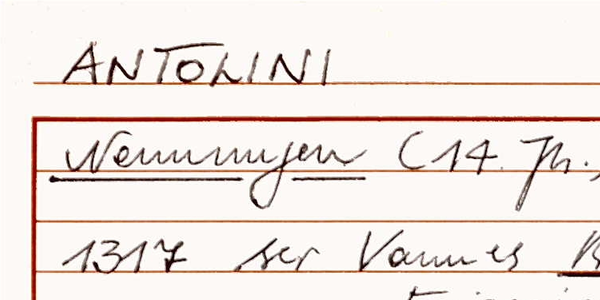 ANTOLINI
Nennungen (14. Jh.,
1317 ser Vannes